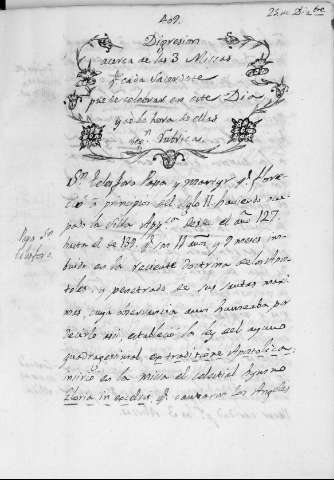 409.
25 de Dizbre
Digresion
acerca de las 3 Missas
q.e cada Sacerdote
puede celebrar en este Dia
y de la hora de ellas
seg.n Rubricas.
Sn. Telesforo Papa y Martyr q.e flore-
cio a principios del siglo II haviendo
la Silla App.ca desde el año 127.
hasta el de 139. q.e son 11 años y 9 meses im-
buido en la reciente doctrina de los Apos-
toles, y penetrado de sus santas maxi-
mas, cuya observancia
estableció la ley del ayuno
quadragesimal, ex traditione Apostolica;
en la missa el celestial hymno
Gloria in excelsis q.e cantaron los Angeles
Papa Sn.
Telesforo.